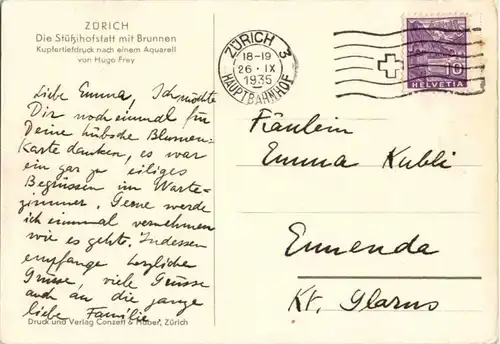 ZÜRICH
Die Stüßihofstatt mit Brunnen
Kupfertiefdruck nach einem Aquarell
von Hugo Frey
Liebe Emma! Ich möchte
Dir noch einmal für
Deine hübsche Blumen-
Karte danken, es war
ein gar zu eiliges
Begrüssen im Warte-
zimmer. Gerne werde
ich einmal vernehmen
wie es geht. Indessen
empfange herzliche
Grüsse, viele Grüsse
auch an die ganze
liebe Familie.
Druck und Verlag Conzett & Huber, Zürich
ZÜRICH 3
18-19
26.IX
1935
HAUPTBAHNHOF
10
HELVETIA
Fräulein
Emma Kubli
Ennenda
Kt. Glarus